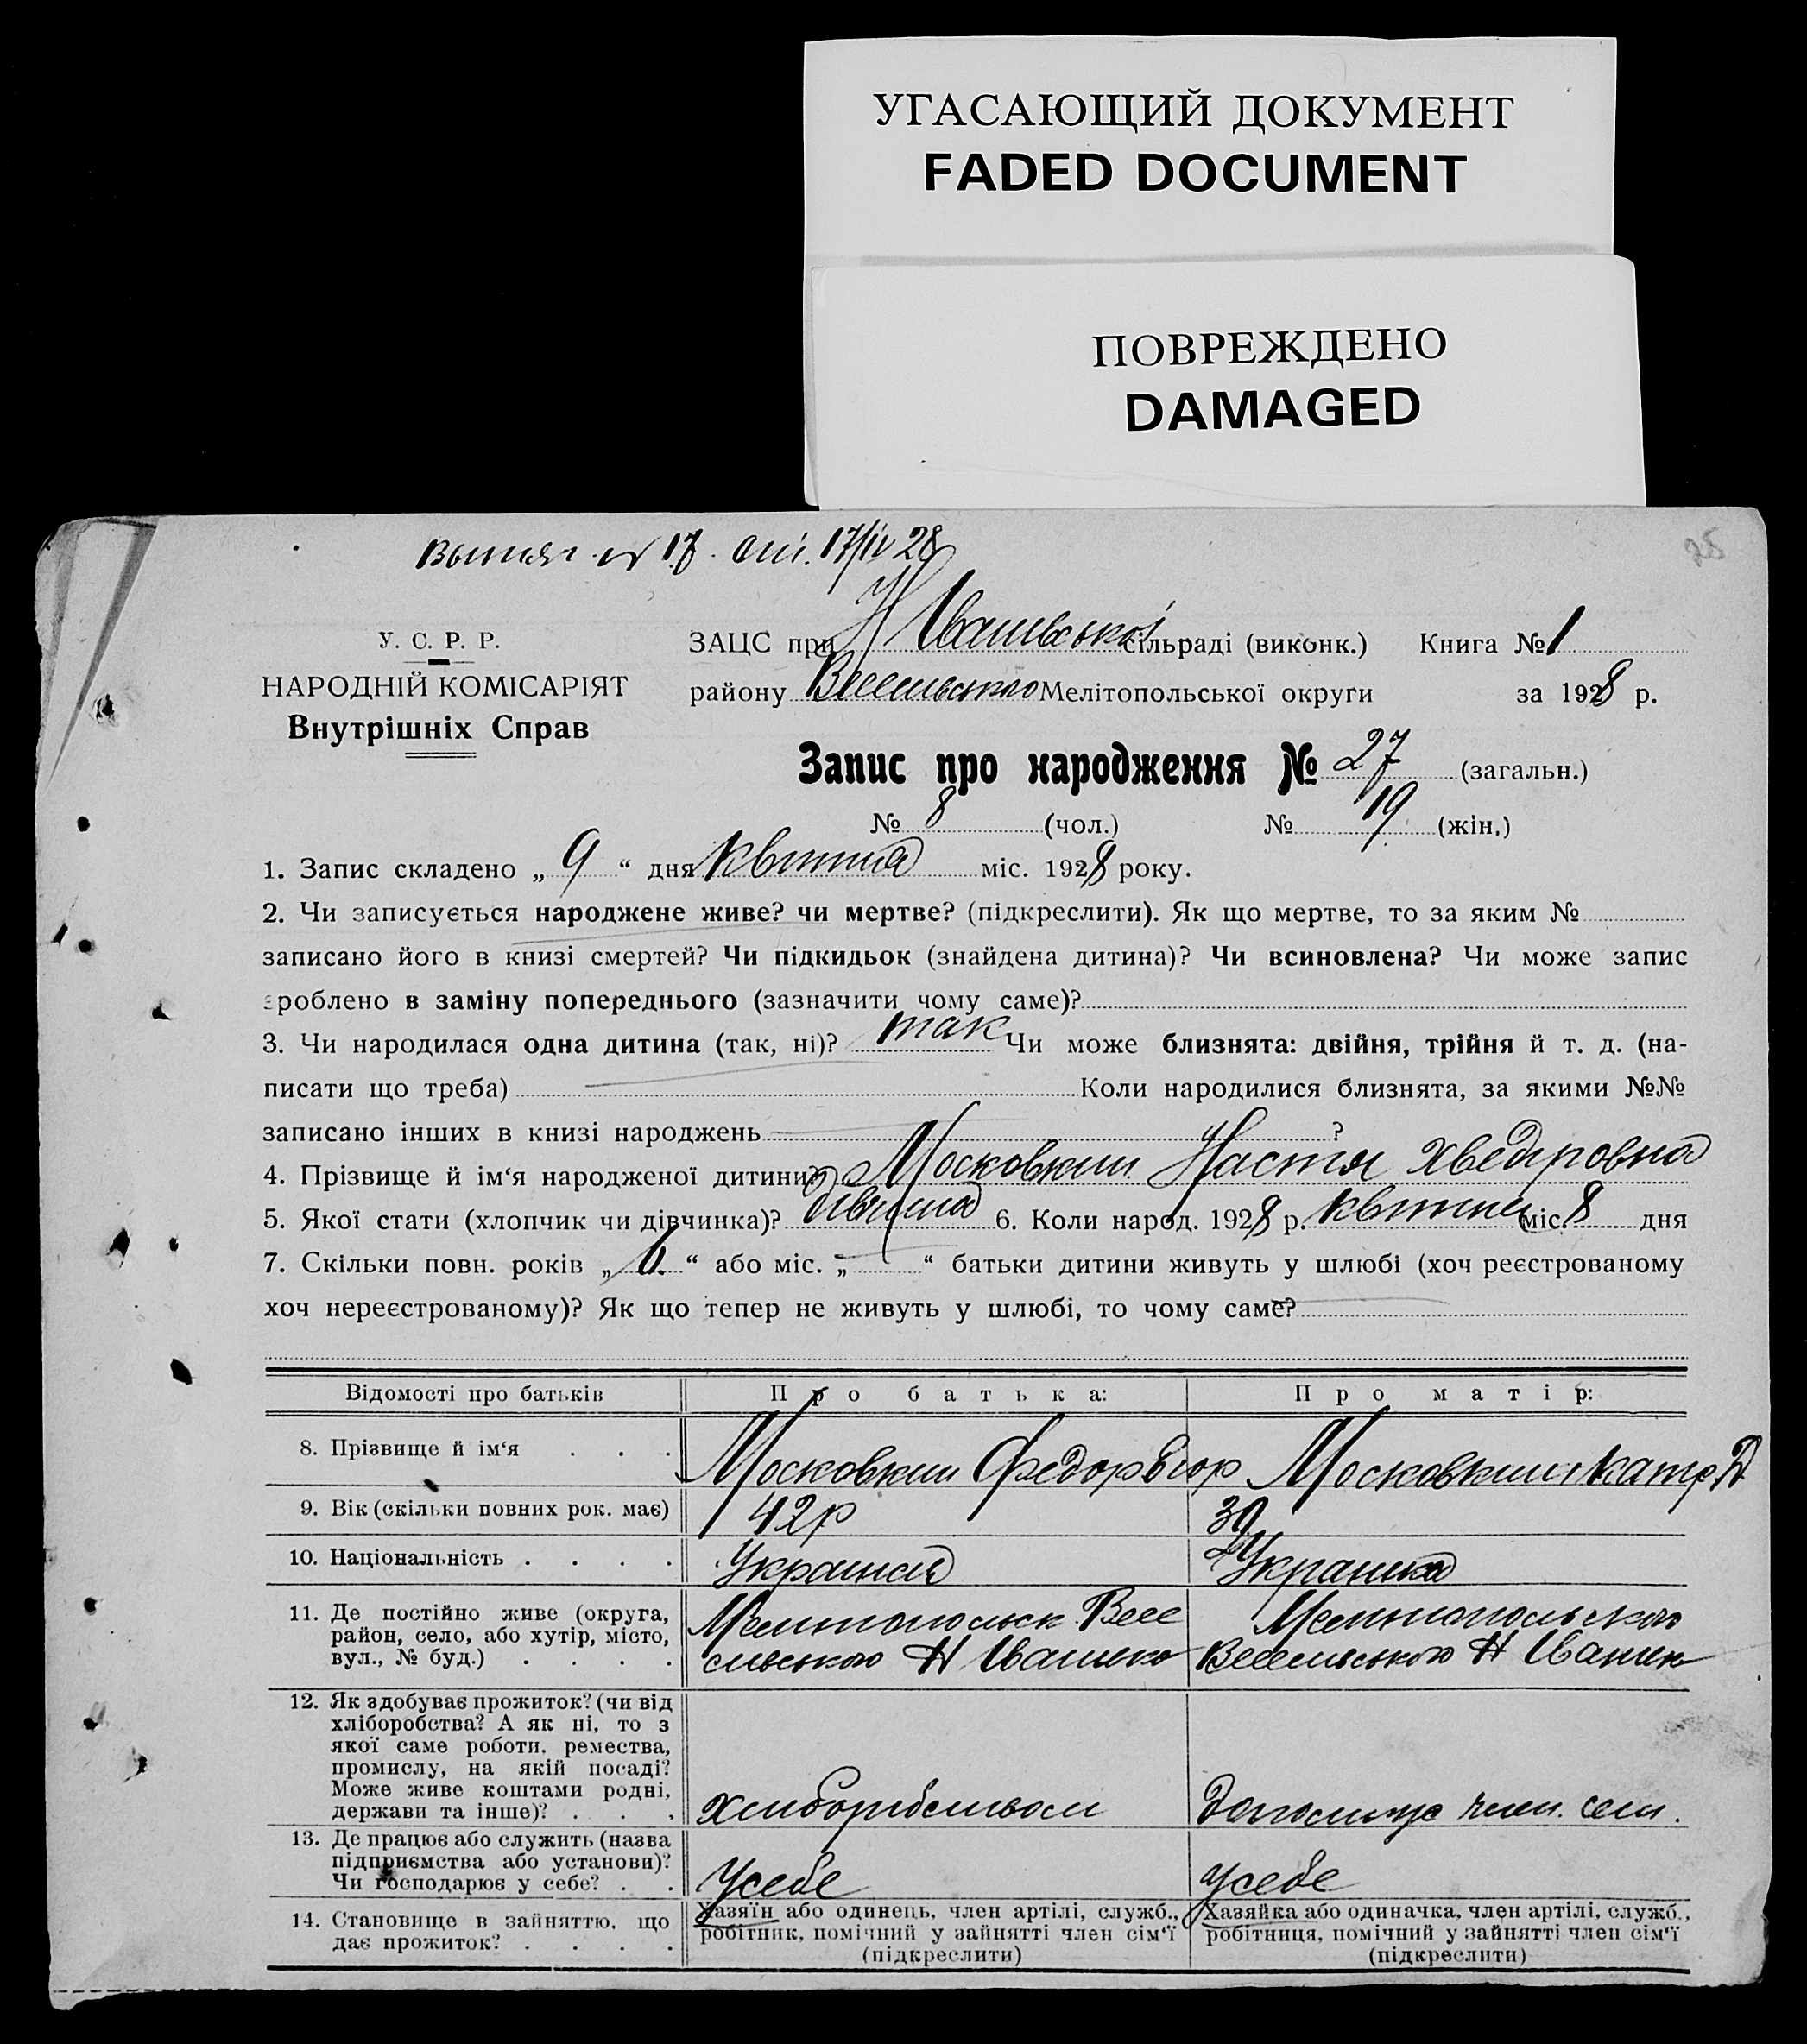 УГАСАЮЩИЙ ДОКУМЕНТ
FADED DOCUMENT
ПОВРЕЖДЕНО
DAMAGED
№ 17. 17/IV 28
У. С. Р. Р.
НАРОДНІЙ КОМІСАРІЯТ
Внутрішніх Справ
ЗАЦС при Н Івашівської сільраді (виконк.) Книга № 1
району Весельського Мелітопольської округи за 1928 р.
Запис про народження № 27 (загальн.)
№ 8 (чол.) № 19 (жін.)
1. Запис складено „ 9 “ дня квітня міс. 1928 року.
2. Чи записується народжене живе? чи мертве? (підкреслити). Як що мертве, то за яким №
записано його в книзі смертей? Чи підкидьок (знайдена дитина)? Чи всиновлена? Чи може запис
зроблено в заміну попереднього (зазначити чому саме)?
3. Чи народилася одна дитина (так, ні)? так Чи може близнята: двійня, трійня й т. д. (на-
писати що треба) Коли народилися близнята, за якими №№
записано інших в книзі народжень ?
4. Прізвище й ім‘я народженої дитини? Московкин Настя Хведоровна
5. Якої стати (хлопчик чи дівчинка)? дівчина 6. Коли народ. 1928 р. квітня міс. 8 дня
7. Скільки повн. років „ 6. “ або міс. „ “ батьки дитини живуть у шлюбі (хоч реєстрованому
хоч нереєстрованому)? Як що тепер не живуть у шлюбі, то чому саме?
Відомості про батьків Про батька: Про матір:
8. Прізвище й ім‘я . . . Московкин Федор Московкина Катр
9. Вік (скільки повних рок. має) 42р 39
10. Національність . . . . Украинец Украинка
11. Де постійно живе (округа,
район, село, або хутір, місто,
вул., № буд.) . . . .
Мелитопольск. Весе
сльського Н Івашкв
Мелитопольского
Весельського Н Івашк
12. Як здобуває прожиток? (чи від
хліборобства? А як ні, то з
якої саме роботи, ремества,
промислу, на якій посаді?
Може живе коштами родні,
держави та інше)? . . .
хлиборобством допомиже член. семи.
13. Де працює або служить (назва
підприємства або установи)?
Чи господарює у себе? . .
Усебе Усебе
14. Становище в зайняттю, що
дає прожиток? . . . .
Хазяїн або одинець, член артілі, служб.,
робітник, помічний у зайнятті член сім‘ї
(підкреслити)
Хазяйка або одиначка, член артілі, служб.,
робітниця, помічний у зайнятті член сім‘ї
(підкреслити)